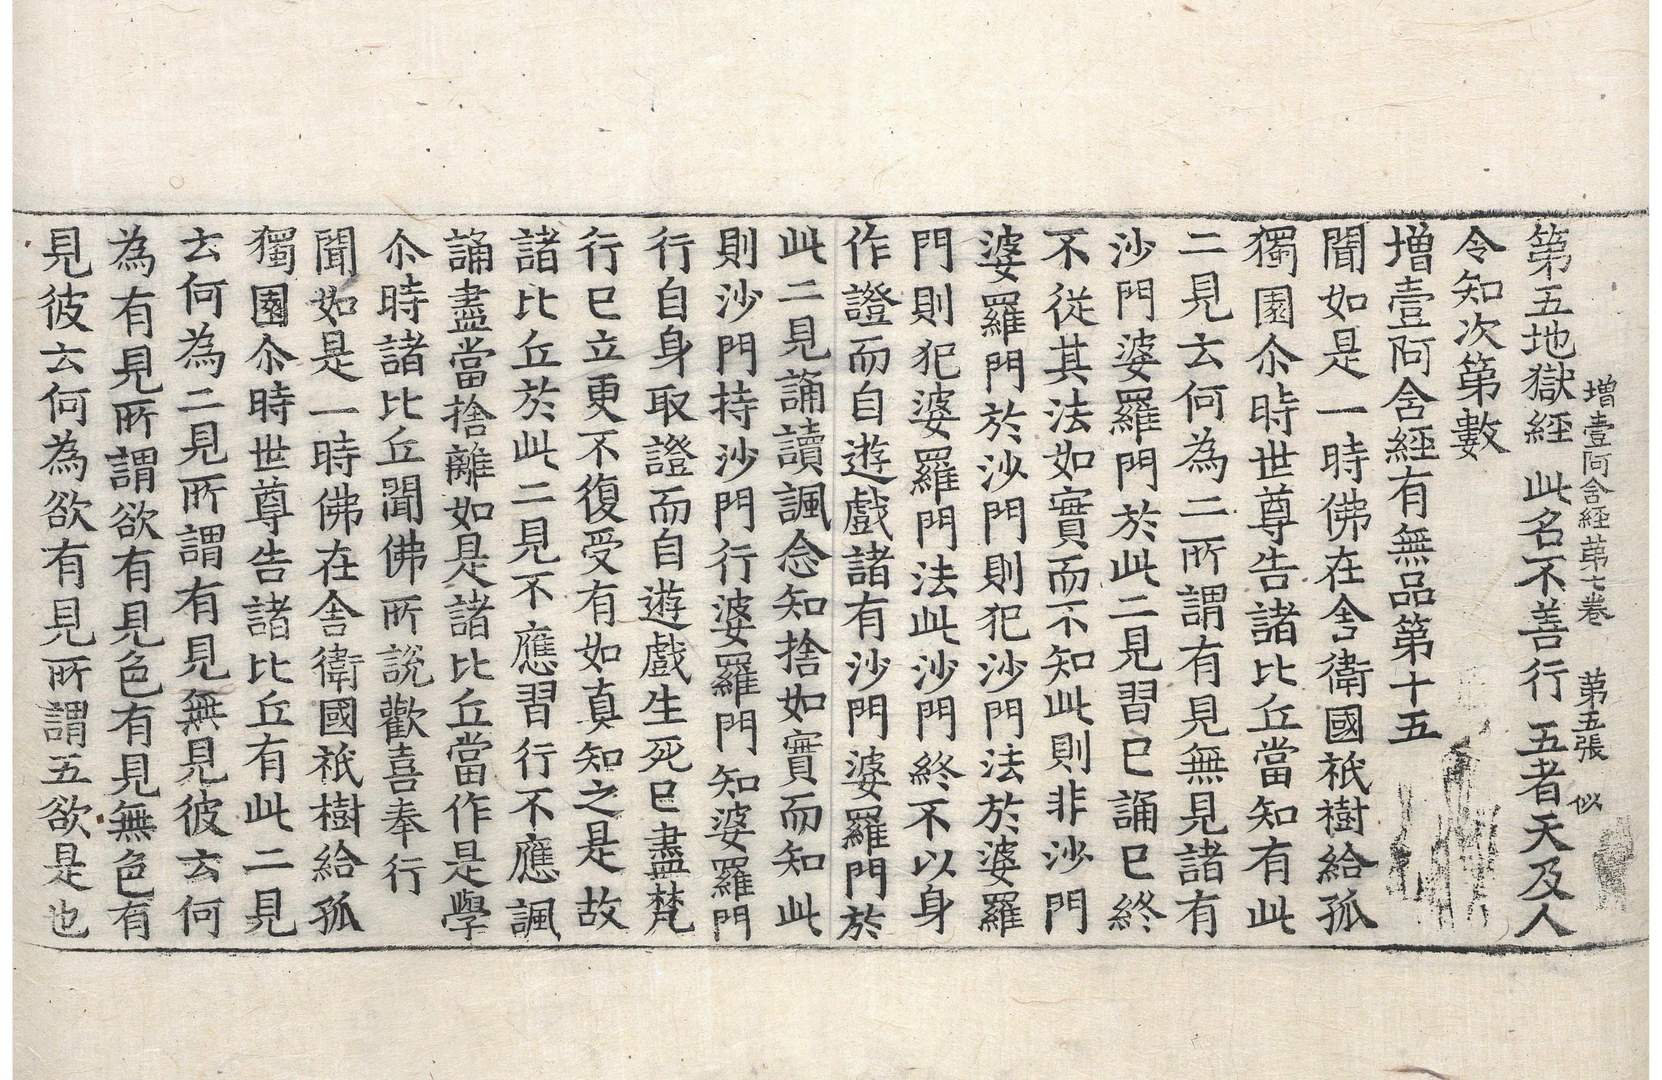 增壹阿含経苐七卷 苐五張 似
第五地獄經 此名不善行 五者天及人
令知次第數
增壹阿含經有無品第十五
聞如是一時佛在舍衛國祇樹給孤
獨園尒時世尊告諸比丘當知有此
二見云何為二所謂有見無見諸有
沙門婆羅門於此二見習已誦已終
不從其法如實而不知此則非沙門
婆羅門於沙門則犯沙門法於婆羅
門則犯婆羅門法此沙門終不以身
作證而自遊戲諸有沙門婆羅門於
此二見誦讀諷念知捨如實而知此
則沙門持沙門行婆羅門知婆羅門
行自身取證而自遊戲生死已盡梵
行已立更不復受有如真知之是故
諸比丘於此二見不應習行不應諷
誦盡當捨離如是諸比丘當作是學
尒時諸比丘聞佛所說歡喜奉行
聞如是一時佛在舍衛國祇樹給孤
獨園尒時世尊告諸比丘有此二見
云何為二見所謂有見無見彼云何
為有見所謂欲有見色有見無色有
見彼云何為欲有見所謂五欲是也